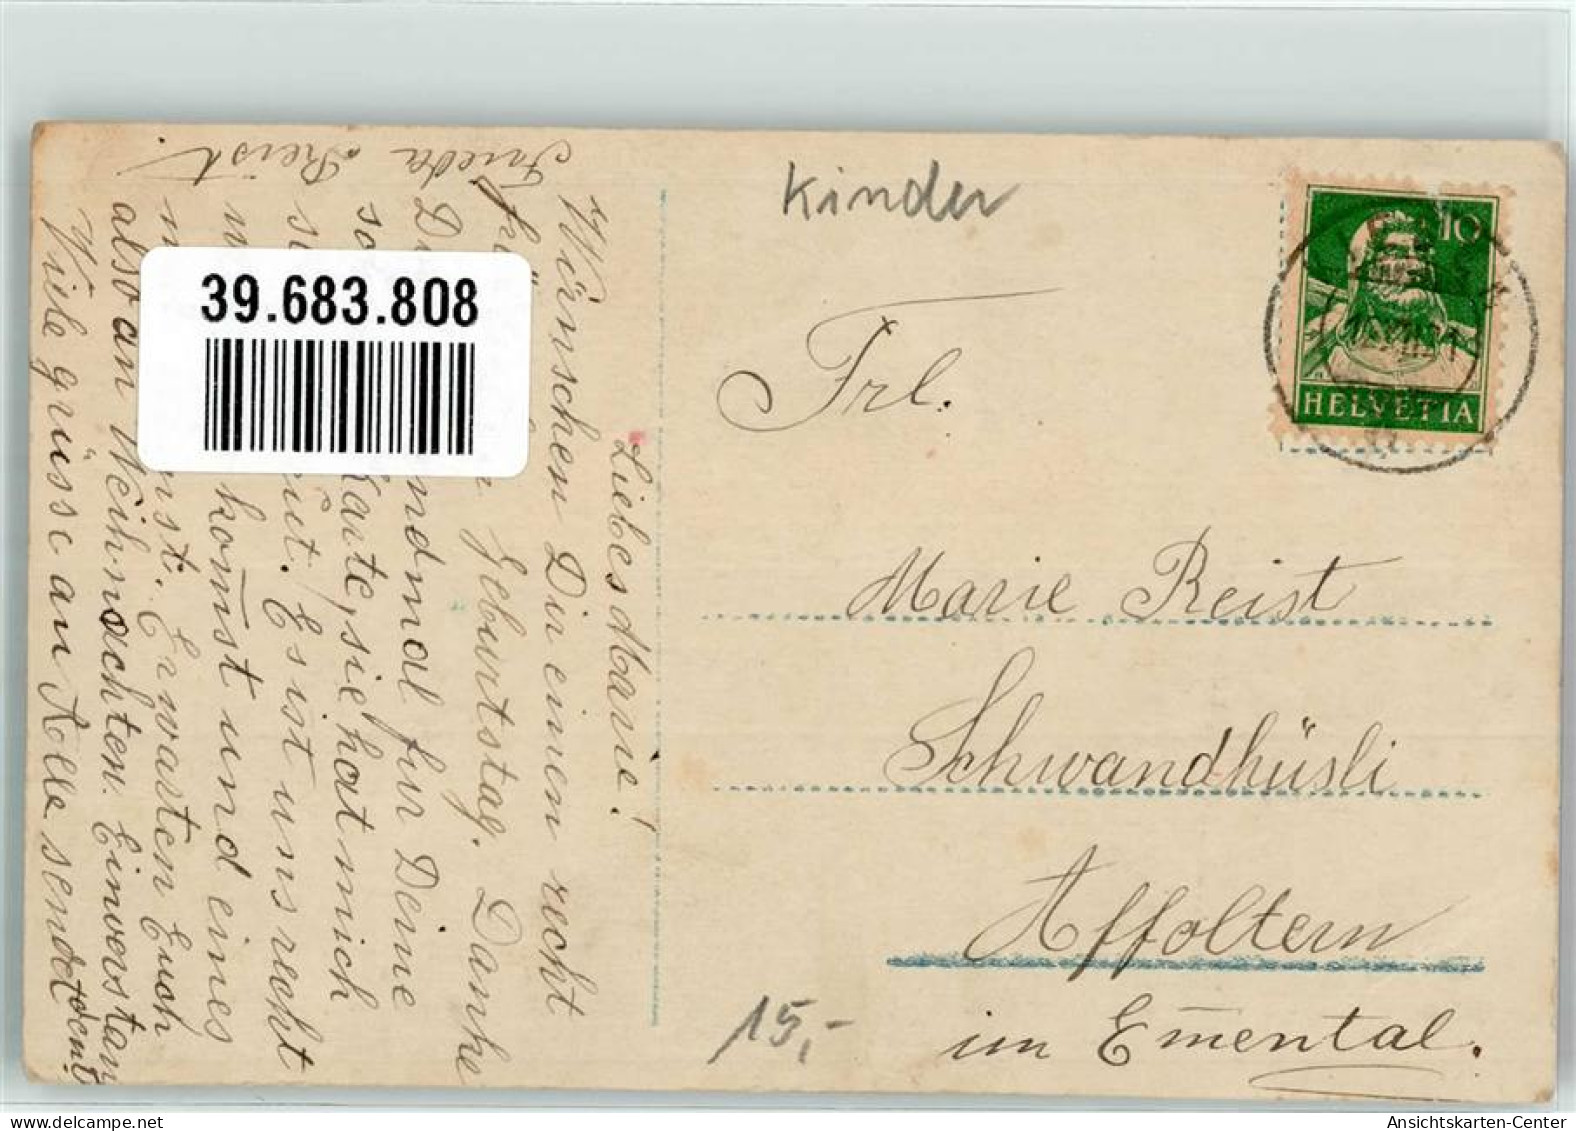 Kinder
10
HELVETIA
Frl.
Marie Reist
Schwandhüsli
Affoltern
im Em̄ental.
15,-
39.683.808
Liebes Marie!
Wünschen Dir einen recht
Geburtstag. Danke
ndmal für Deine
so Karte, sie hat mich
Es ist uns recht
kom̄st und eines
nst. Erwarten Euch
also an Weihnachten. Einverstan
Viele grüsse an Alle sendet
Frieda Reist.
Ansichtskarten-Center